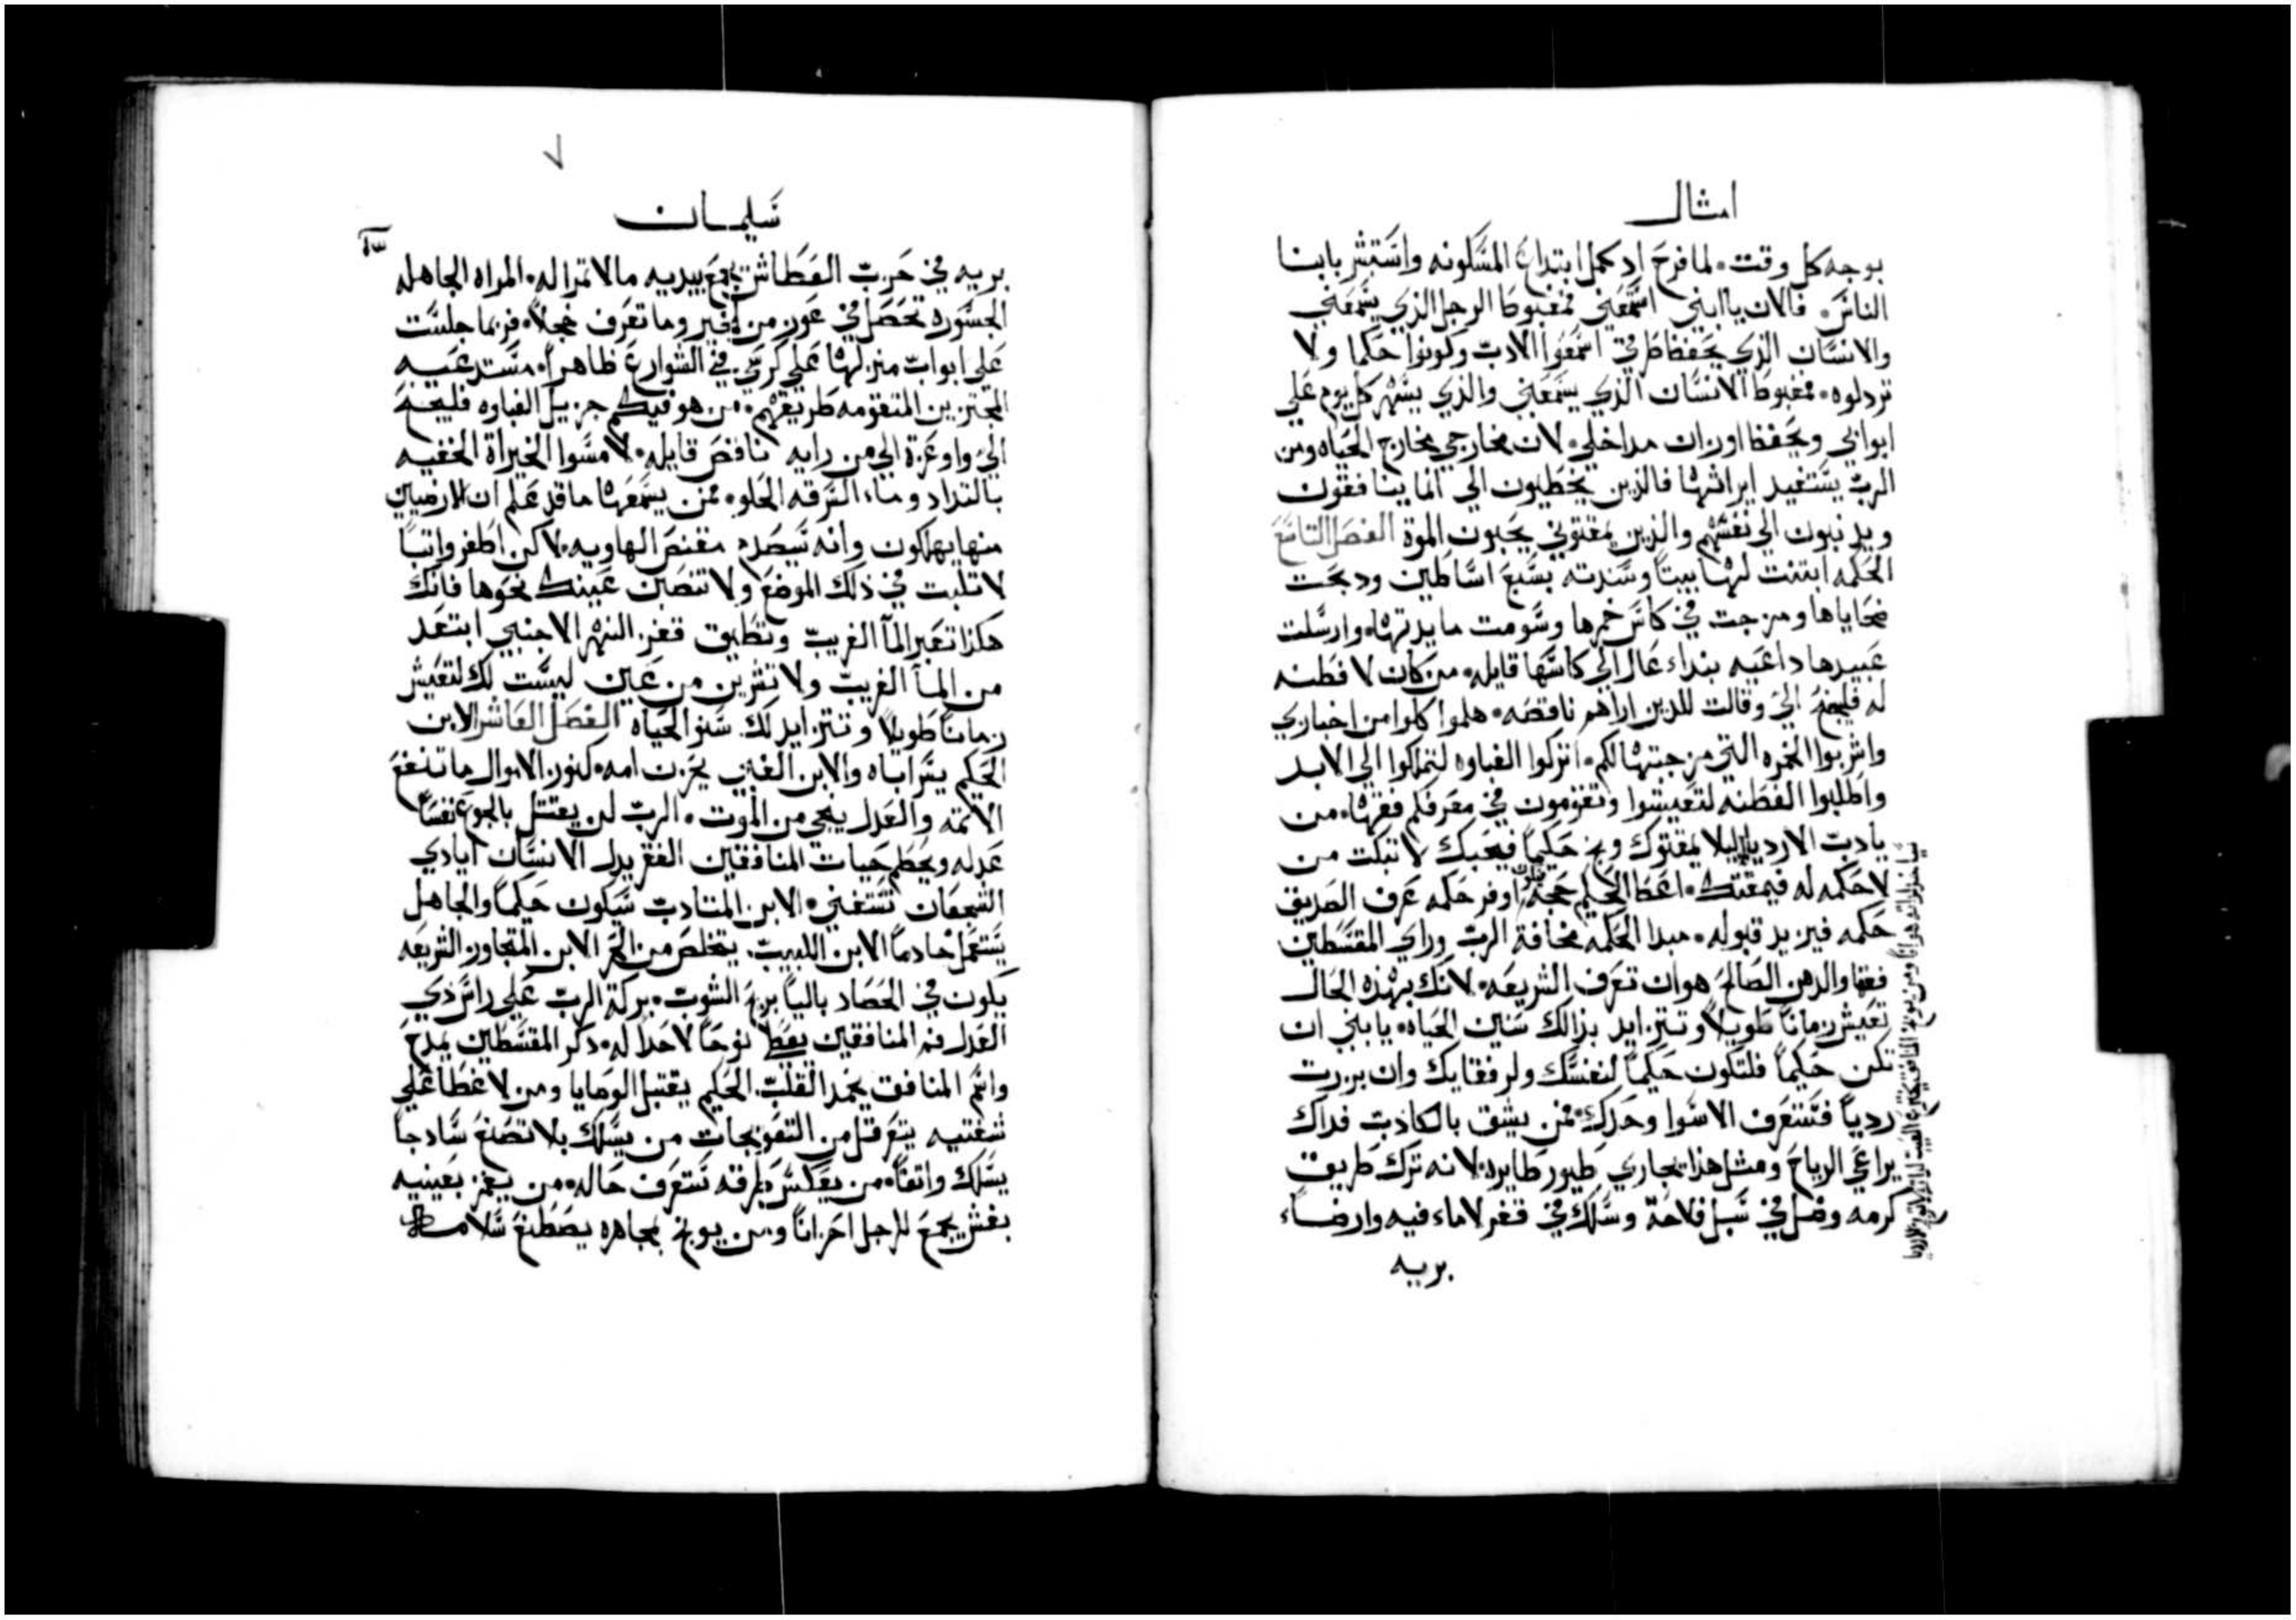 امثال
بوجه كل وقت. لما فرح اد كمل ابتداع المسكونه واستبشر بابنا
الناس. فالان يا ابني اسمعني فمغبوط الرجل الذي يسمعني
والانسان الذي يحفظ طرقي اسمعوا الادب وكونوا حكما ولا
تردلوه. مغبوط الانسان الذي يسمعني والذي يسهر كل يوم علي
ابوابي ويحفظ اوزان مداخلي. لان مخارجي مخارج الحياه ومن
الرب يستفيد ايراثها فالذين يخطيون الي انما ينافقون
ويدنبون الي نفسهم والذين يمقتوني يحبون الموة الفصل التاسع
الحكمه ابتنت لها بيتاً وسندته بسبع اساطين ودبحت
ضحاياها ومزجت في كاس خمرها وسومت مايدتها. وارسلت
عبيدها داعيه بنداء عال الي كاسها قايله. من كان لا فطنه
له فليجنح الي وقالت للدين اراهم ناقصه. هلموا كلوا من اخبازي
واشربوا الخمره التي مزجتها لكم. اتركوا الغباوه لتملكوا الي الابد
واطلبوا الفطنه لتعيشوا وتقومون في معرفكم فقهها. من
يادب الاردياء ليلا يمقتوك وبخ حكيماً فيحبك لا تبكت من
لا حكمه له فيمقتك. اعط الحكيم حجة فيكون اوفر حكمه عرف الصديق
حكمه فيزيد قبوله. مبدا الحكمه مخافة الرب وراي المقسطين
فقها والدهن الصالح هو ان تعرف الشريعه. لانك بهذه الحال
تعيش زماناً طويلاً وتتزايد بذالك سنين الحياه. يابني ان
تكن حكيماً فلتكون حكيماً لنفسك ولرفقايك وان برزت
ردياً فستعرف الاسوا وحدك. فمن يثق بالكاذب فداك
يراعي الرياح ومثل هذا يجاري طيور طايره. لانه ترك طريق
كرمه وضل في سبل فلاحة وسلك في قفر لاماء فيه وارضاء
بريه
سليمان
بريه في حرب العطاش يجمع بيديه مالا تمرا له. المراه الجاهله
الجسوره تحصل في عوز من الخير وما تعرف خجلاً. فربما جلست
علي ابواب منزلها علي كرسي في الشوارع ظاهراً. مستدعيه
المجتزين المتقومه طريقهم. من هو فيكم جزيل الغباوه فليجنح
الي واوعزة الي من رايه ناقص قايله. لامسوا الخبز اة الخفيه
بالتداد وماء السرقه الحلو. فمن يسمعها ما قد علم ان الارضيين
منها يهلكون وانه سيصدم مقنص الهاويه. لاكن اطفر واتباً
لا تلبت في ذلك الموضع ولا تنصبن عينك نحوها فانك
هكذا تعبر المآ الغريب وتطبق قفز النهر الاجنبي ابتعد
من المآ الغريب ولا تشربن من عين ليست لك لتعيش
زماناً طويلاً وتتزايد لك سنو الحياه الفصل العاشر الابن
الحكيم يسر اباه والابن الغبي يحزن امه. كنوز الاموال ما تنفع
الاثمه والعدل ينجي من الموت. الرب لن يقتل بالجوع نفساً
عدله ويحطم حيات المنافقين الفقر يدل الانسان ايادي
الشجعان تستغني. الابن المتادب سيكون حكيماً والجاهل
يستعمل خادماً الابن اللبيب يتخلص من الحر الابن المتجاوز الشريعه
يكون في الحصاد بالياً بريح الشوب. بركة الرب علي راس ذي
العدل فم المنافقين يغطا نوحاً لا حدا له. دكر المقسطين يمدح
واسم المنافق يخمد القلب الحكيم يقتبل الوصايا ومن لا غطا علي
شفتيه يتعرقل من التعويجات من يسلك بلا تصنع سادجاً
يسلك واتقاً. من يعكس طرقه ستعرف حاله. من يغمز بعينيه
بغش يجمع للرجل احزاناً ومن يوبخ بمجاهره يصطنع سلامه